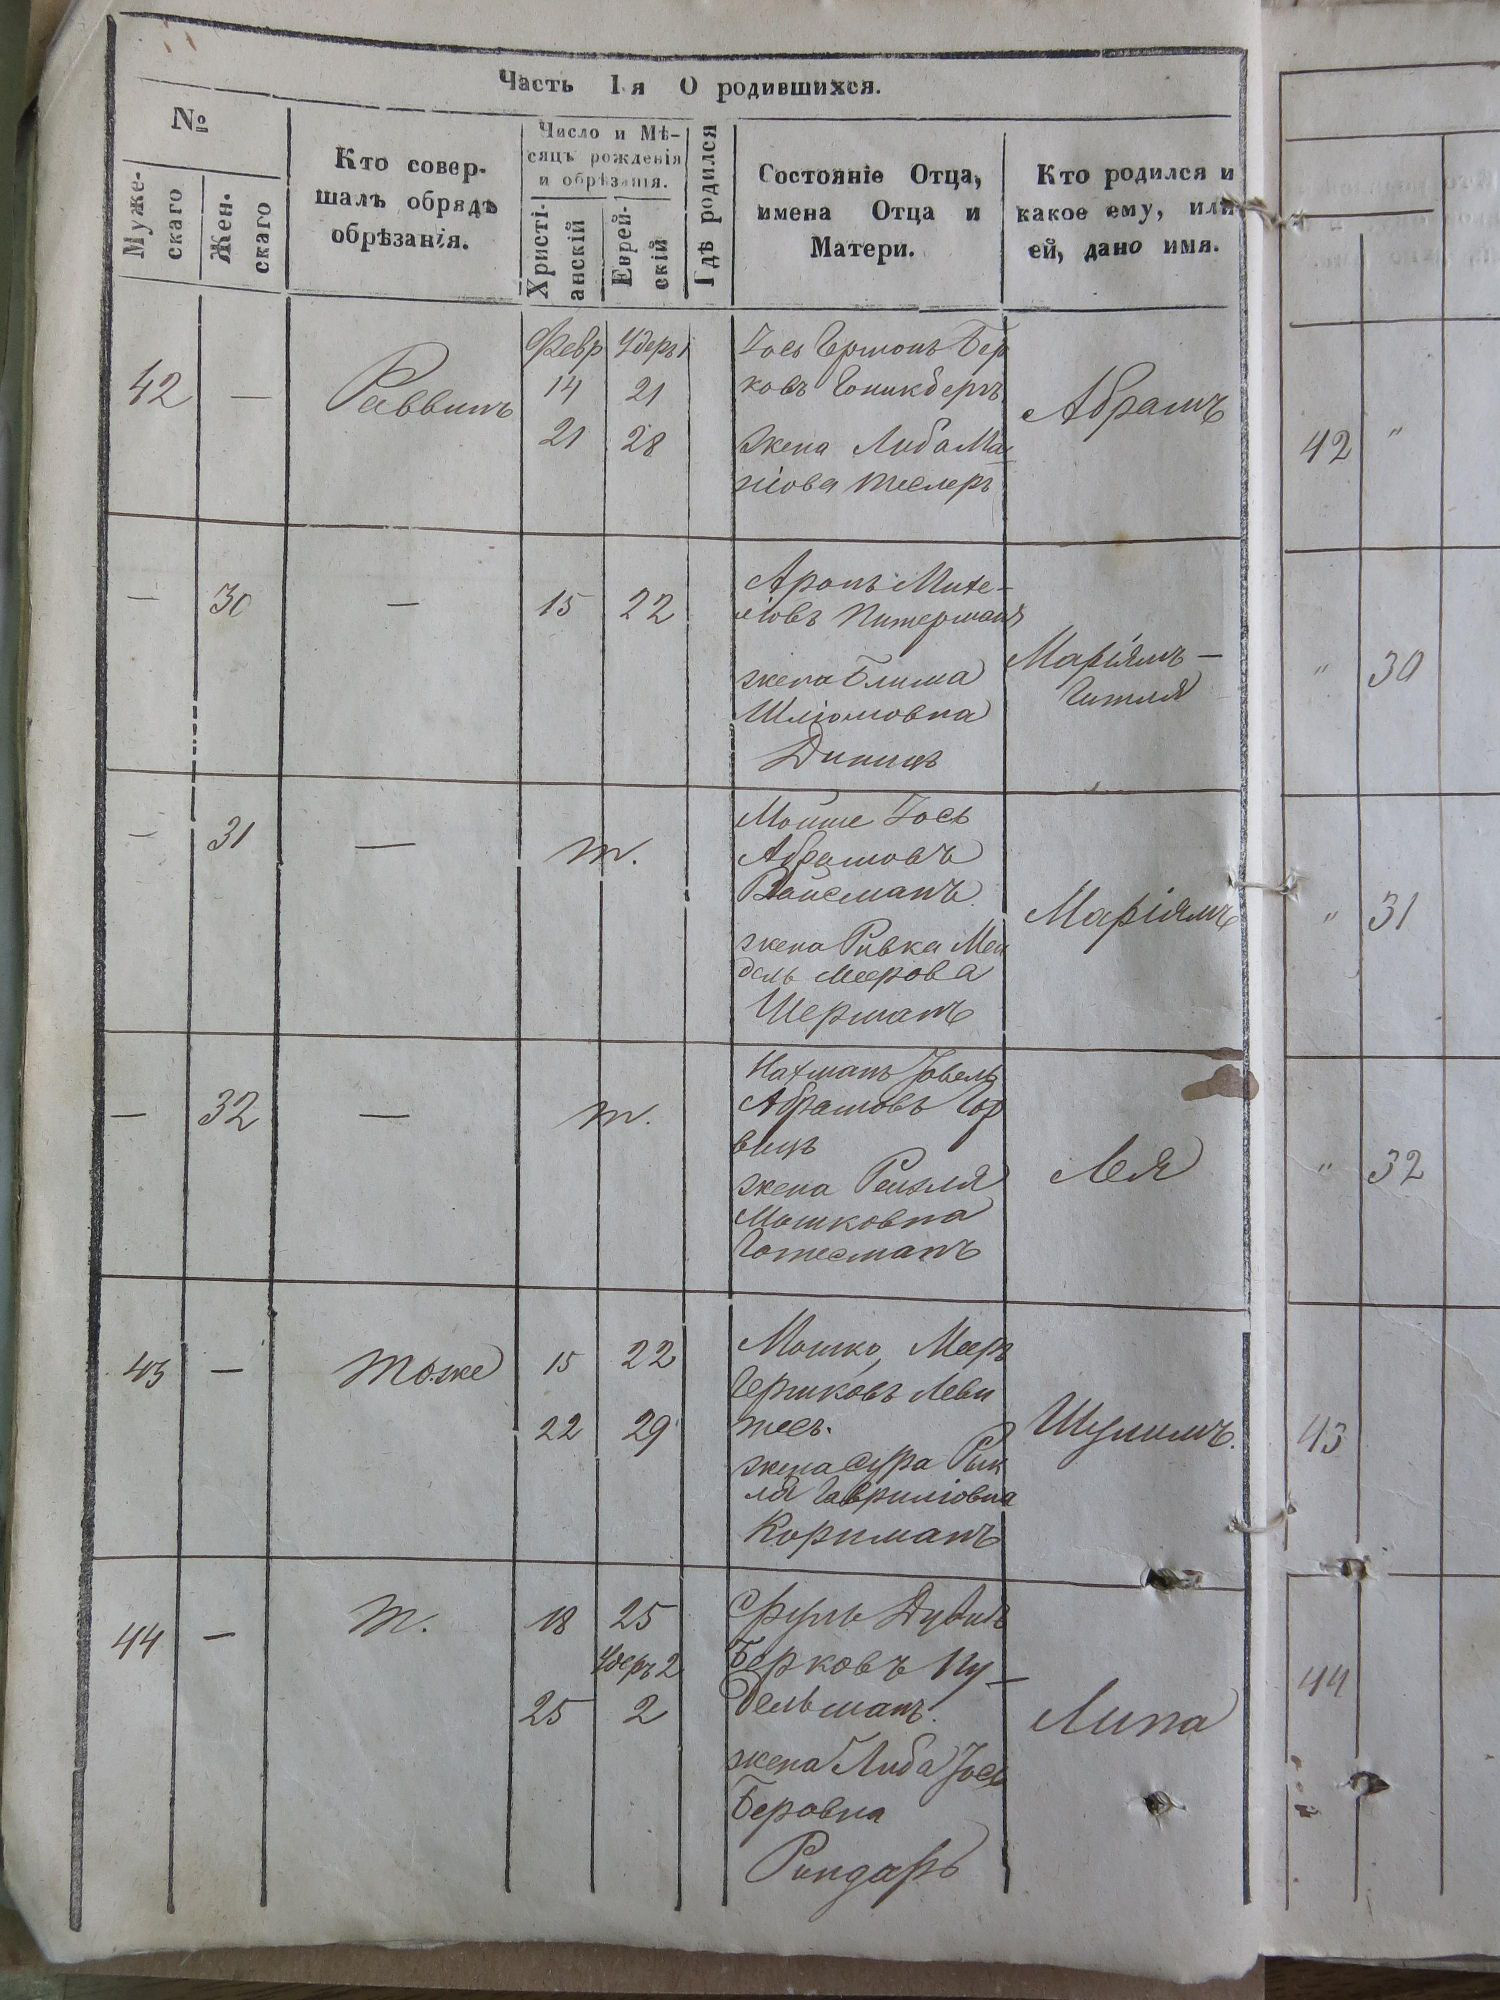 Часть I-я О родившихся.
№
Муже-
скаго
Жен-
скаго
Кто совер-
шалъ обрядъ
обрѣзанія.
Число и Мѣ-
сяцъ рожденія
и обрѣзанія.
Христі-
анскій
Еврей-
скій
Гдѣ родился
Состояніе Отца,
имена Отца и
Матери.
Кто родился и
какое ему, или
ей, дано имя.
42
—
Раввинъ
Февр
14
21
Удеръ 1
21
28
Іось Гершонъ Бер
ковъ
жена Либа Ма-
ніова Теслеръ
Абрамъ
—
30
—
15
22
Аронъ Михе-
ліовъ Питерманъ
жена Блима
Шліомовна
Диницъ
Маріямъ —
Гитля
—
31
—
т.
Мойше Іось
Абрамовъ
Вайсманъ
жена Ривка Мен
дель Меерова
Шерманъ
Маріямъ
—
32
—
т.
Нахманъ Іовель
Абрамовъ Гор
вицъ
жена Рейзля
Мошковна
Готесманъ
Лея
43
—
тоже
15
22
22
29
Мошко, Меер
Гершковъ Леви
тесъ.
жена Сура Рик
ля Гавриліовна
Корнманъ
Шулимъ.
44
—
т.
18
25
25
Удеръ 2
2
Сруль Дувидъ
Берковъ Ну-
дельманъ.
жена Либа Іось
Беровна
Риндаръ
Липа
42 "
" 30
" 31
" 32
43
44